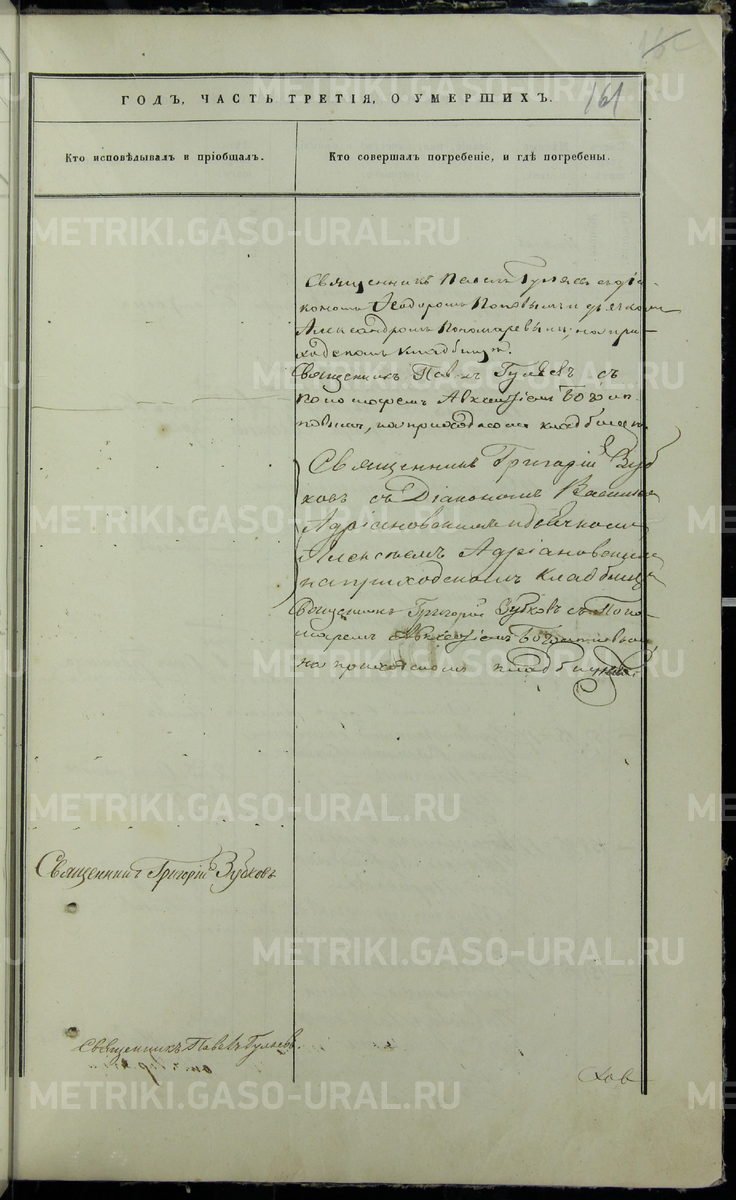 161
ГОДЪ, ЧАСТЬ ТРЕТІЯ, О УМЕРШИХЪ.
Кто исповѣдывалъ и пріобщалъ.
Кто совершалъ погребеніе, и гдѣ погребены.
Священникъ Павелъ Гуляевъ съ діа-
кономъ Ѳеодоромъ Поповымъ и дьячкомъ
Александромъ Пономаревымъ, на при-
ходскомъ кладбищѣ.
Священникъ Павелъ Гуляевъ съ
пономаремъ Авксентіемъ
на приходскомъ кладбищѣ.
Священникъ Григорій Зуб
ковъ съ Діакономъ Васильемъ
Адріановскимъ и дьячкомъ
Алексѣемъ Адріановскимъ
на приходскомъ кладбищѣ
Священникъ Григорій Зубковъ съ Поно-
маремъ Авксентіемъ
на приходскомъ кладбищѣ
Священникъ Григорій Зубковъ
Священникъ Павелъ Гуляевъ.
METRIKI.GASO-URAL.RU